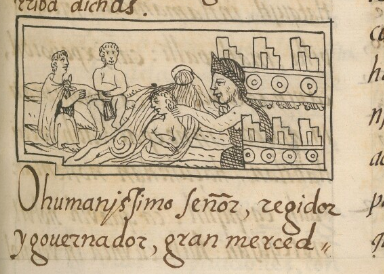 rriba dichas.
O humanissimo señor, regidor
y gouernador, gran merced